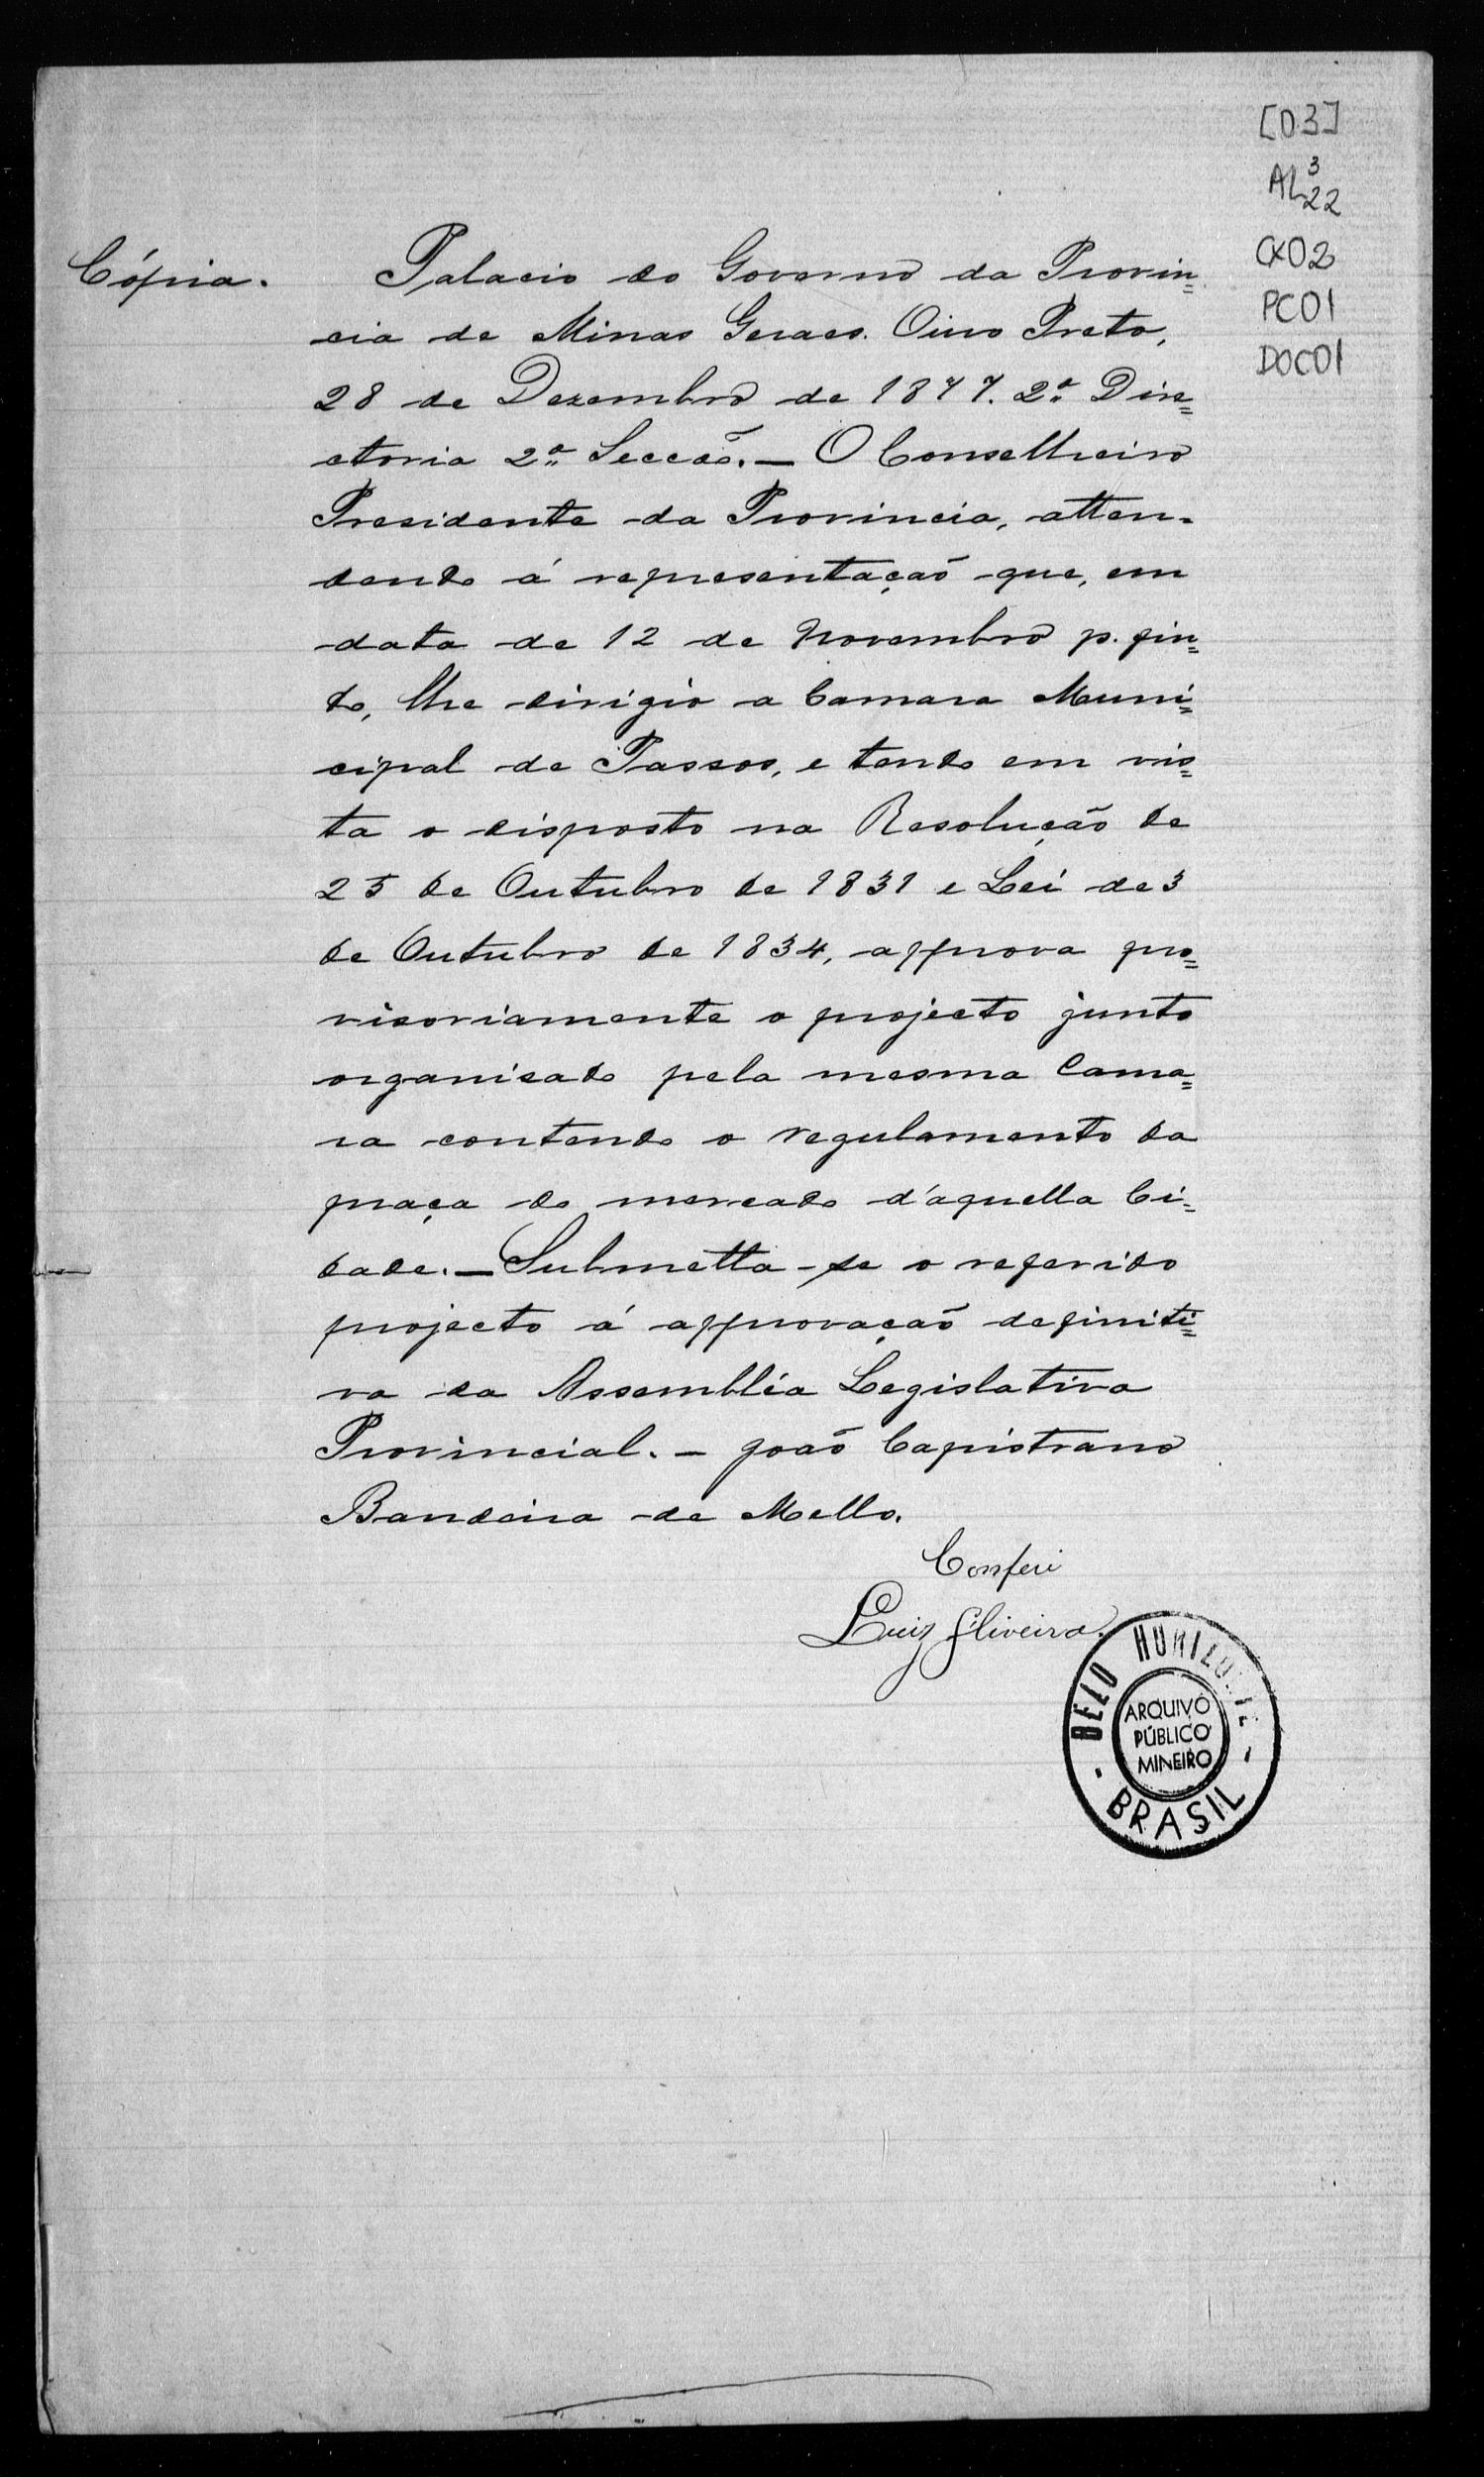 [03]
AL 3 22
CX02
PC01
DOC01
Cópia. Palacio do Governo da Provin=
cia de Minas Geraes. Ouro Preto,
28 de Dezembro de 1877. 2ª Dire=
ctoria 2ª Secção. — O Conselheiro
Presidente da Provincia, atten=
dendo á representação que, em
data de 12 de Novembro p. fin=
do, lhe dirigio a Camara Muni=
cipal de Passos, e tendo em vis=
ta o disposto na Resolução de
25 de Outubro de 1831 e Lei de 3
de Outubro de 1834, approva pro=
visoriamente o projecto junto
organisado pela mesma Cama=
ra contendo o regulamento da
praça do mercado d'aquella Ci=
dade. — Submetta-se o referido
projecto á approvação definiti=
va da Assembléa Legislativa
Provincial. — João Capistrano
Bandeira de Mello.
Conferi
Luiz Oliveira.
BELO HORIZONTE
ARQUIVO
PÚBLICO
MINEIRO
- BRASIL -